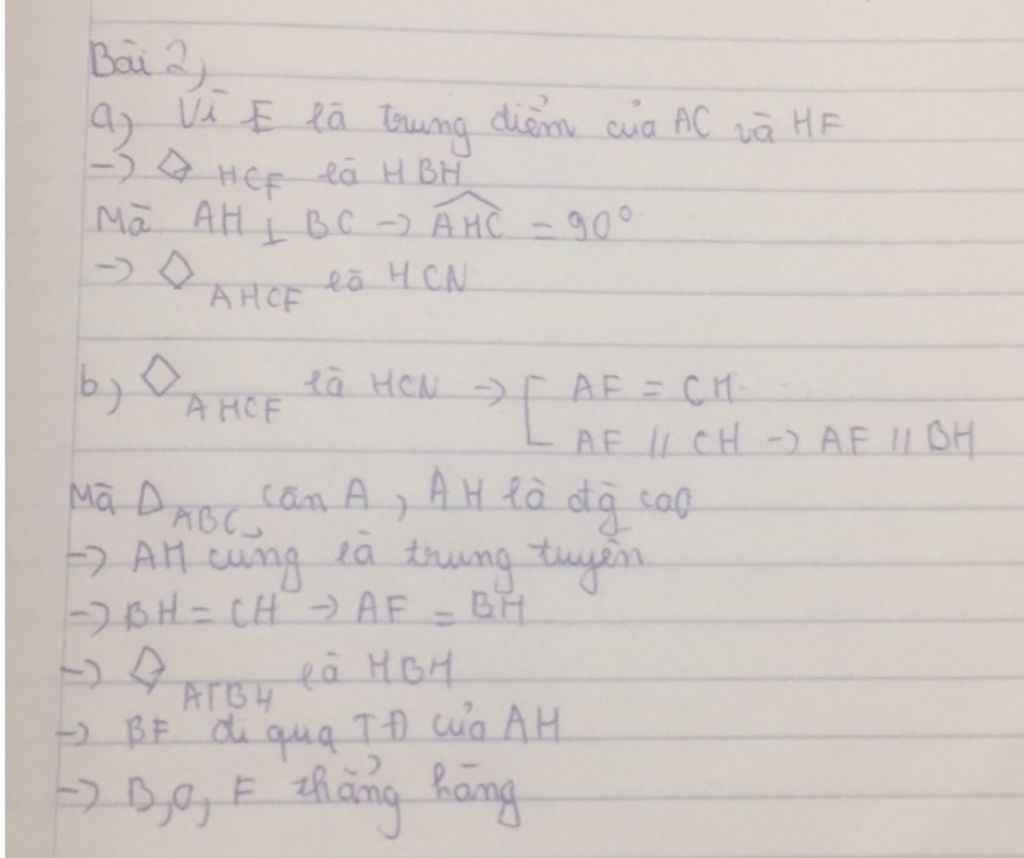 Bài 2,
a, Vì E là trung điểm của AC và HF
→ ◇ HCF là HBH
Mà AH ⊥ BC → \widehat{AHC} = 90°
→ ◇ AHCF là HCN
b, ◇ AHCF là HCN → [ AF = CH
AF // CH → AF // BH
Mà Δ ABC cân A, AH là đg cao
→ AH cũng là trung tuyến
→ BH = CH → AF = BH
→ ◇ AFBH là HBH
→ BF đi qua TĐ của AH
→ B, O, F thẳng hàng